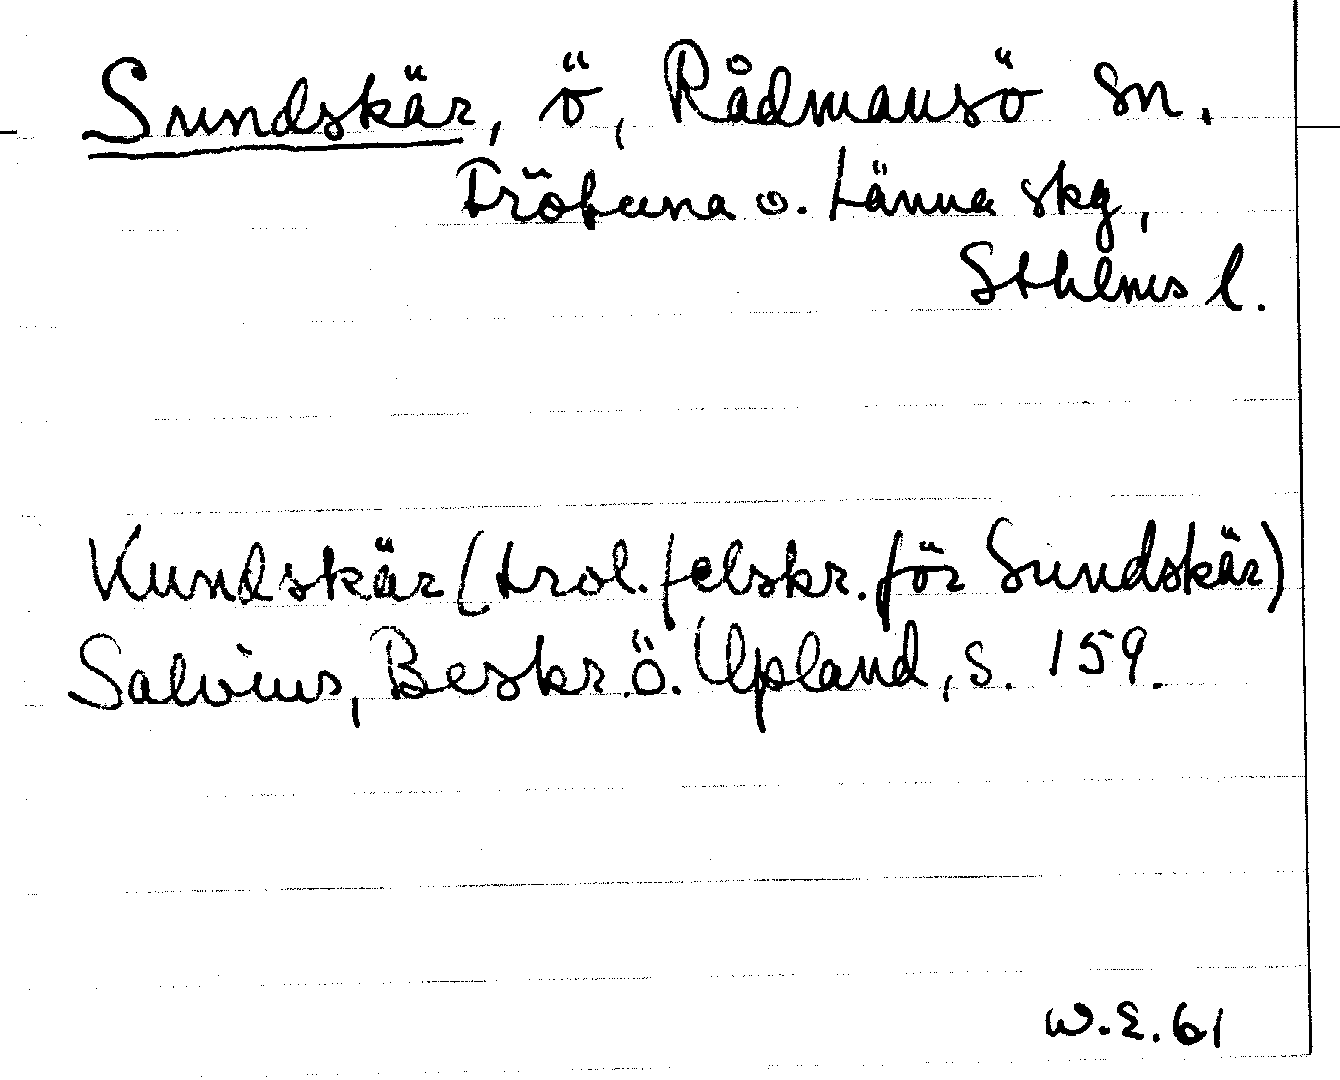 Sundskär, ö, Rådmansö sn.
Frötuna o. Länna skg,
Sthlms l.
Kundskär (trol. felskr. för Sundskär)
Salvius, Beskr. ö. Upland, s. 159.
W.E. 61